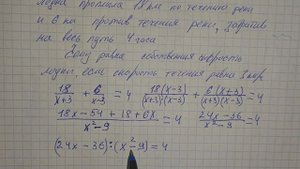 лодка проплыла 18 км по течению реки
и 6 км против течения реки, затратив
на весь путь 4 часа
Чему равна собственная скорость
лодки, если скорость течения равна 3 км/ч
18/(x+3) + 6/(x-3) = 4 18(x-3)/((x+3)(x-3)) + 6(x+3)/((x+3)(x-3)) = 4
(18x-54+18+6x)/(x²-9) = 4 (24x-36)/(x²-9) = 4
(24x-36):(x²-9)=4